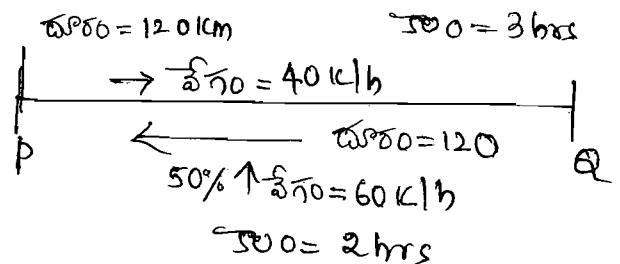 దూరం = 120 km కాలం = 3 hrs
→ వేగం = 40 k/h
P ← దూరం = 120 Q
50% ↑ వేగం = 60 k/h
కాలం = 2 hrs